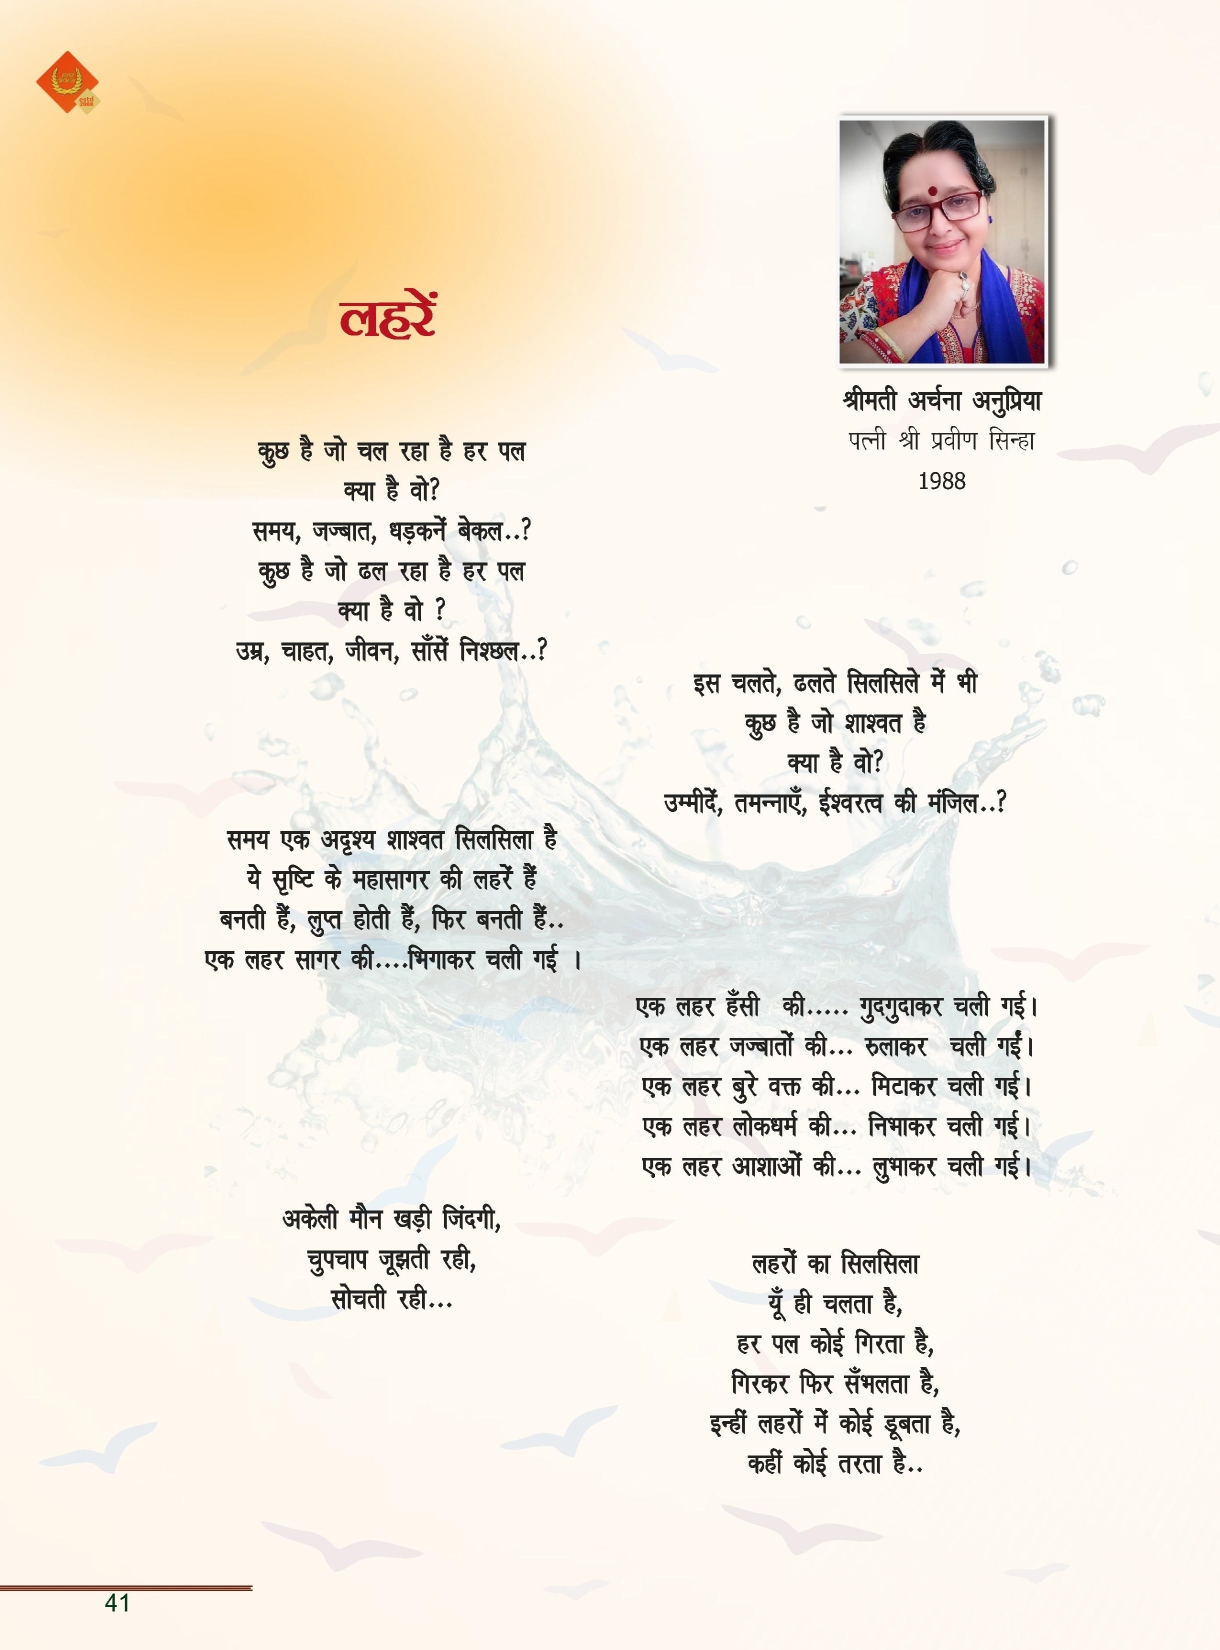 लहरें
श्रीमती अर्चना अनुप्रिया
पत्नी श्री प्रवीण सिन्हा
1988
कुछ है जो चल रहा है हर पल
क्या है वो?
समय, जज्बात, धड़कनें बेकल..?
कुछ है जो ढल रहा है हर पल
क्या है वो ?
उम्र, चाहत, जीवन, साँसें निश्छल..?
इस चलते, ढलते सिलसिले में भी
कुछ है जो शाश्वत है
क्या है वो?
उम्मीदें, तमन्नाएँ, ईश्वरत्व की मंजिल..?
समय एक अदृश्य शाश्वत सिलसिला है
ये सृष्टि के महासागर की लहरें हैं
बनती हैं, लुप्त होती हैं, फिर बनती हैं..
एक लहर सागर की....भिगाकर चली गई ।
एक लहर हँसी की..... गुदगुदाकर चली गई।
एक लहर जज्बातों की... रुलाकर चली गईं।
एक लहर बुरे वक्त की... मिटाकर चली गई।
एक लहर लोकधर्म की... निभाकर चली गई।
एक लहर आशाओं की... लुभाकर चली गई।
अकेली मौन खड़ी जिंदगी,
चुपचाप जूझती रही,
सोचती रही...
लहरों का सिलसिला
यूँ ही चलता है,
हर पल कोई गिरता है,
गिरकर फिर सँभलता है,
इन्हीं लहरों में कोई डूबता है,
कहीं कोई तरता है..
41